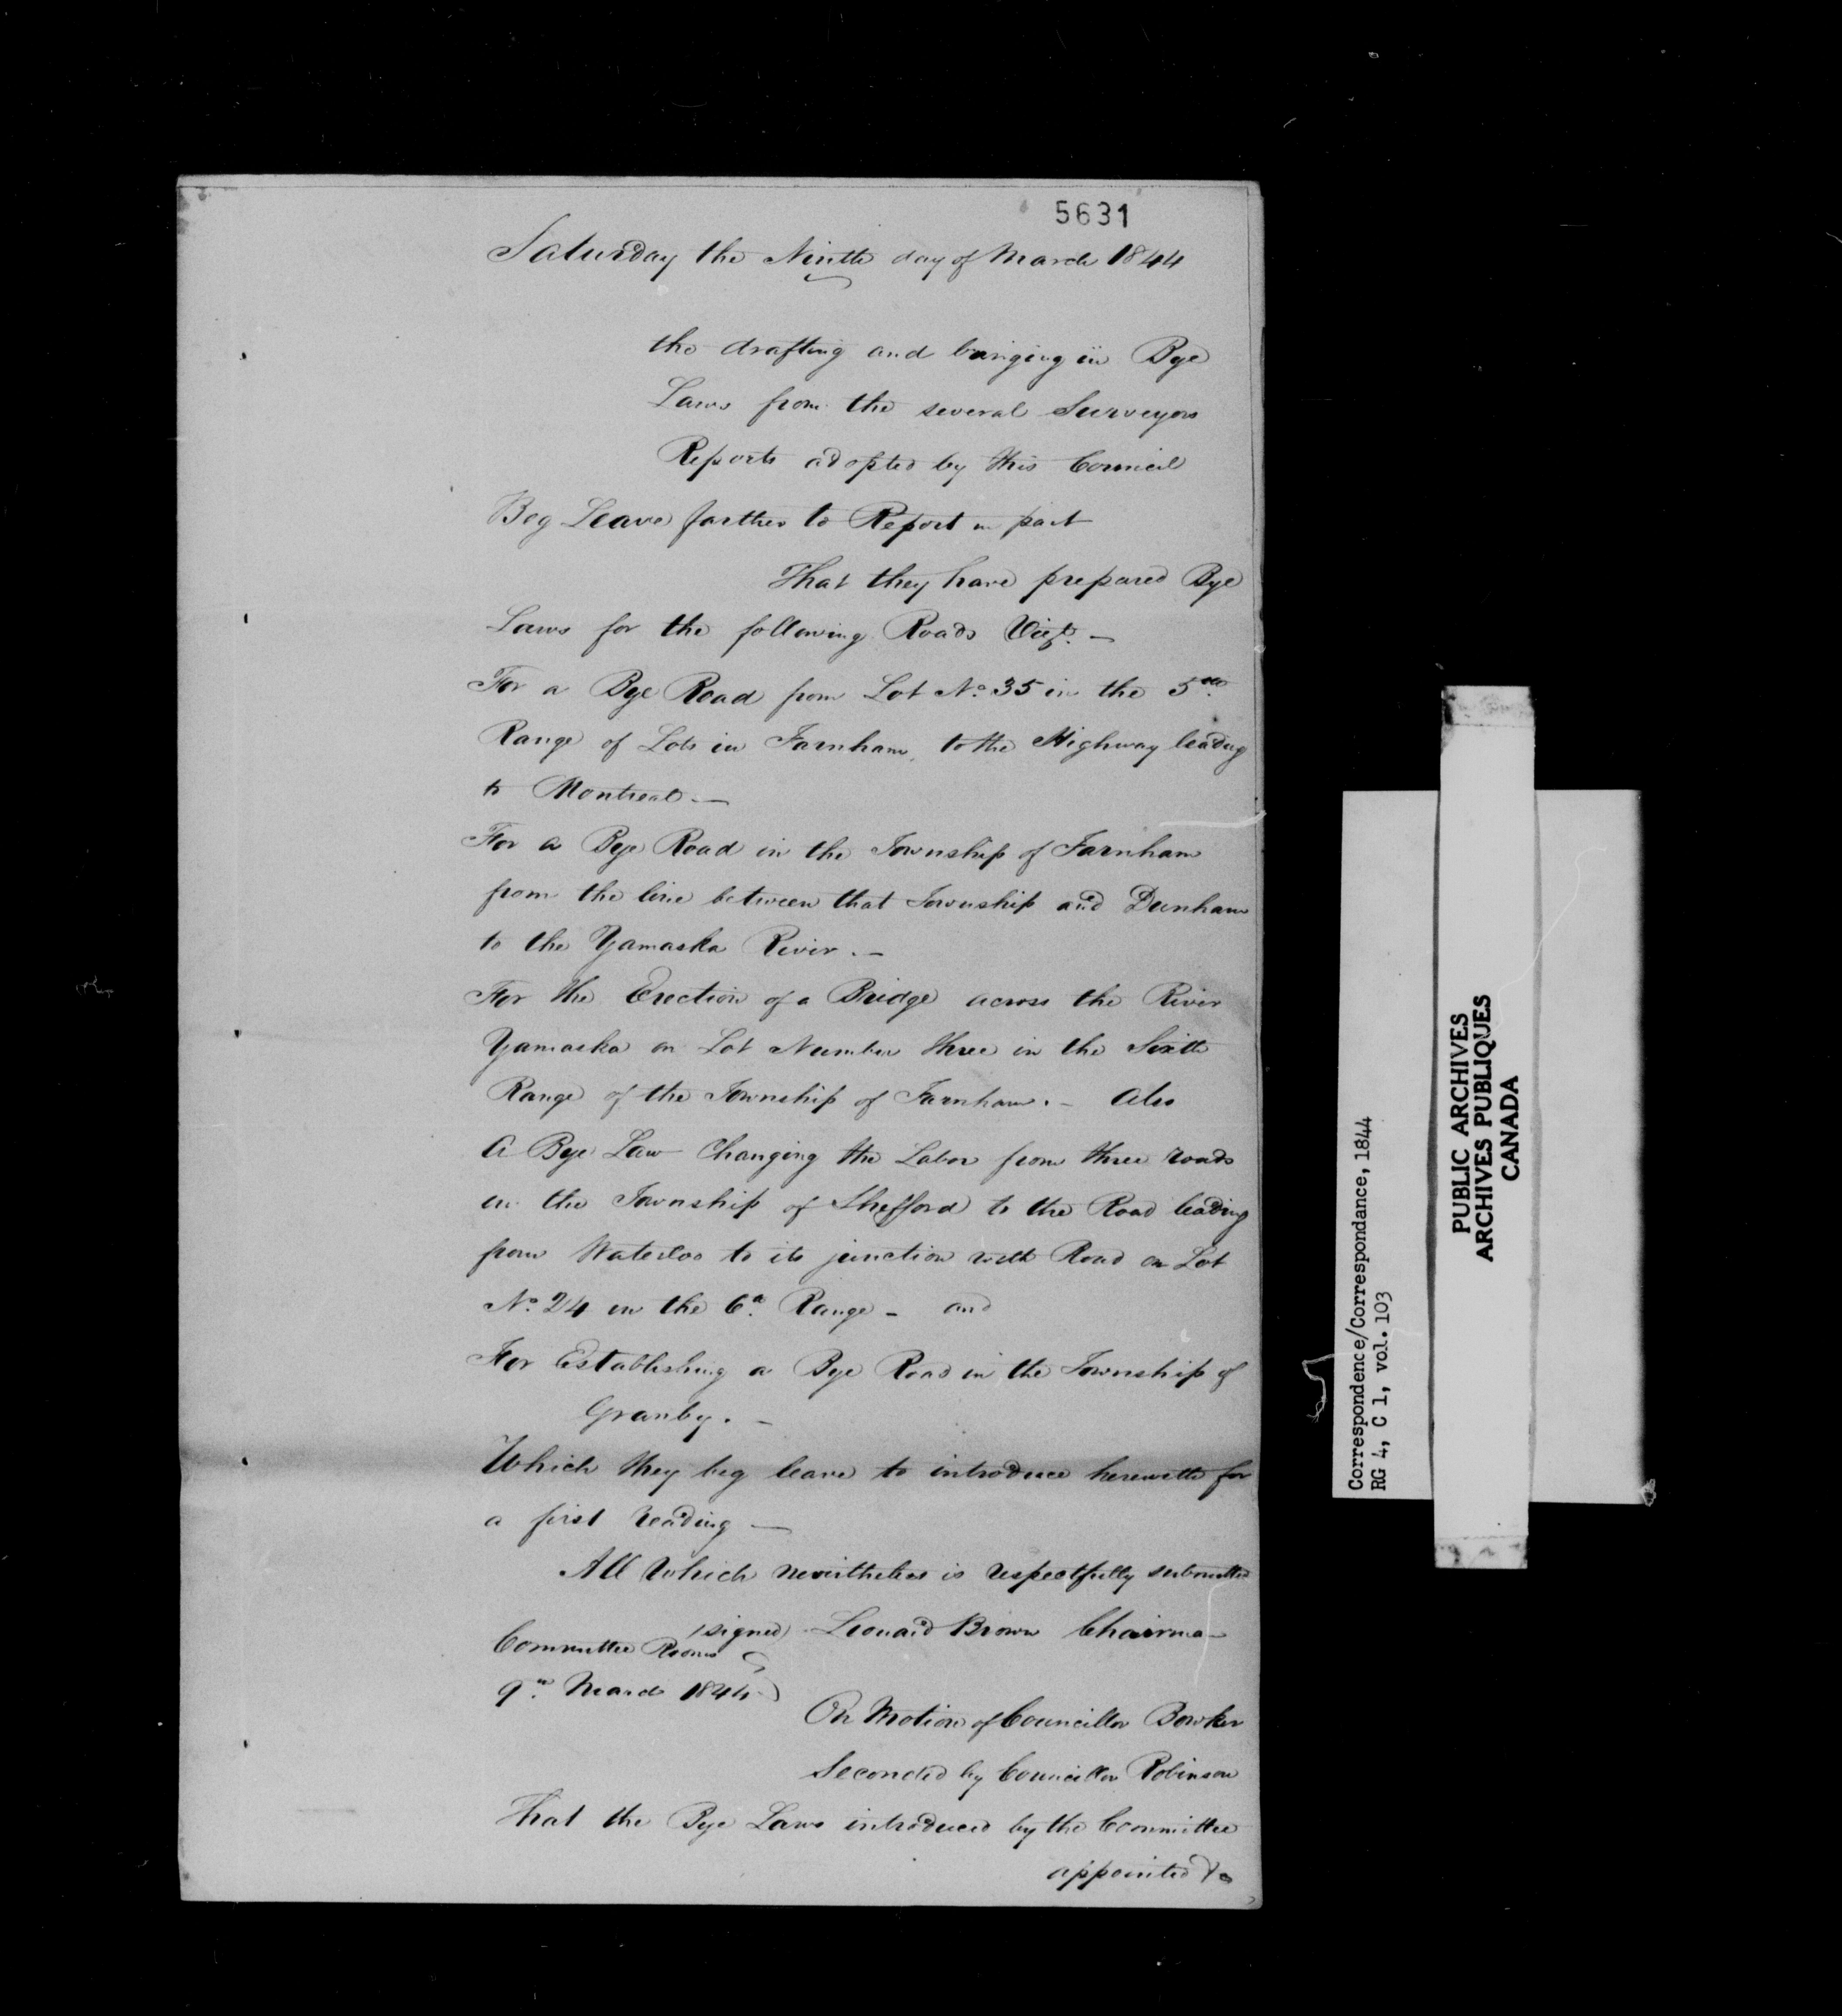 5631
Saturday the Ninth day of March 1844
the drafting and bringing in Bye
Laws from the several Surveyors
Reports adopted by this Council
Beg Leave farther to Report in part
That they have prepared Bye
Laws for the following Roads Vizt. —
For a Bye Road from Lot No. 35 in the 5th
Range of Lots in Farnham, to the Highway leading
to Montreal. —
For a Bye Road in the Township of Farnham
from the line between that Township and Dunham
to the Yamaska River. —
For the Erection of a Bridge across the River
Yamaska on Lot Number three in the Sixth
Range of the Township of Farnham. — Also
A Bye Law Changing the Labor from three roads
in the Township of Shefford to the Road leading
from Waterloo to its junction with Road on Lot
No. 24 in the 6th Range — and
For Establishing a Bye Road in the Township of
Granby. —
Which they beg leave to introduce herewith for
a first reading —
All which nevertheless is respectfully submitted
(signed) Leonard Brown Chairman
Committee Rooms
9th March 1844
On Motion of Councillor Bowker
Seconded by Councillor Robinson
That the Bye Laws introduced by the Committee
appointed to
Correspondence/Correspondance, 1844
RG 4, C 1, vol. 103
PUBLIC ARCHIVES
ARCHIVES PUBLIQUES
CANADA